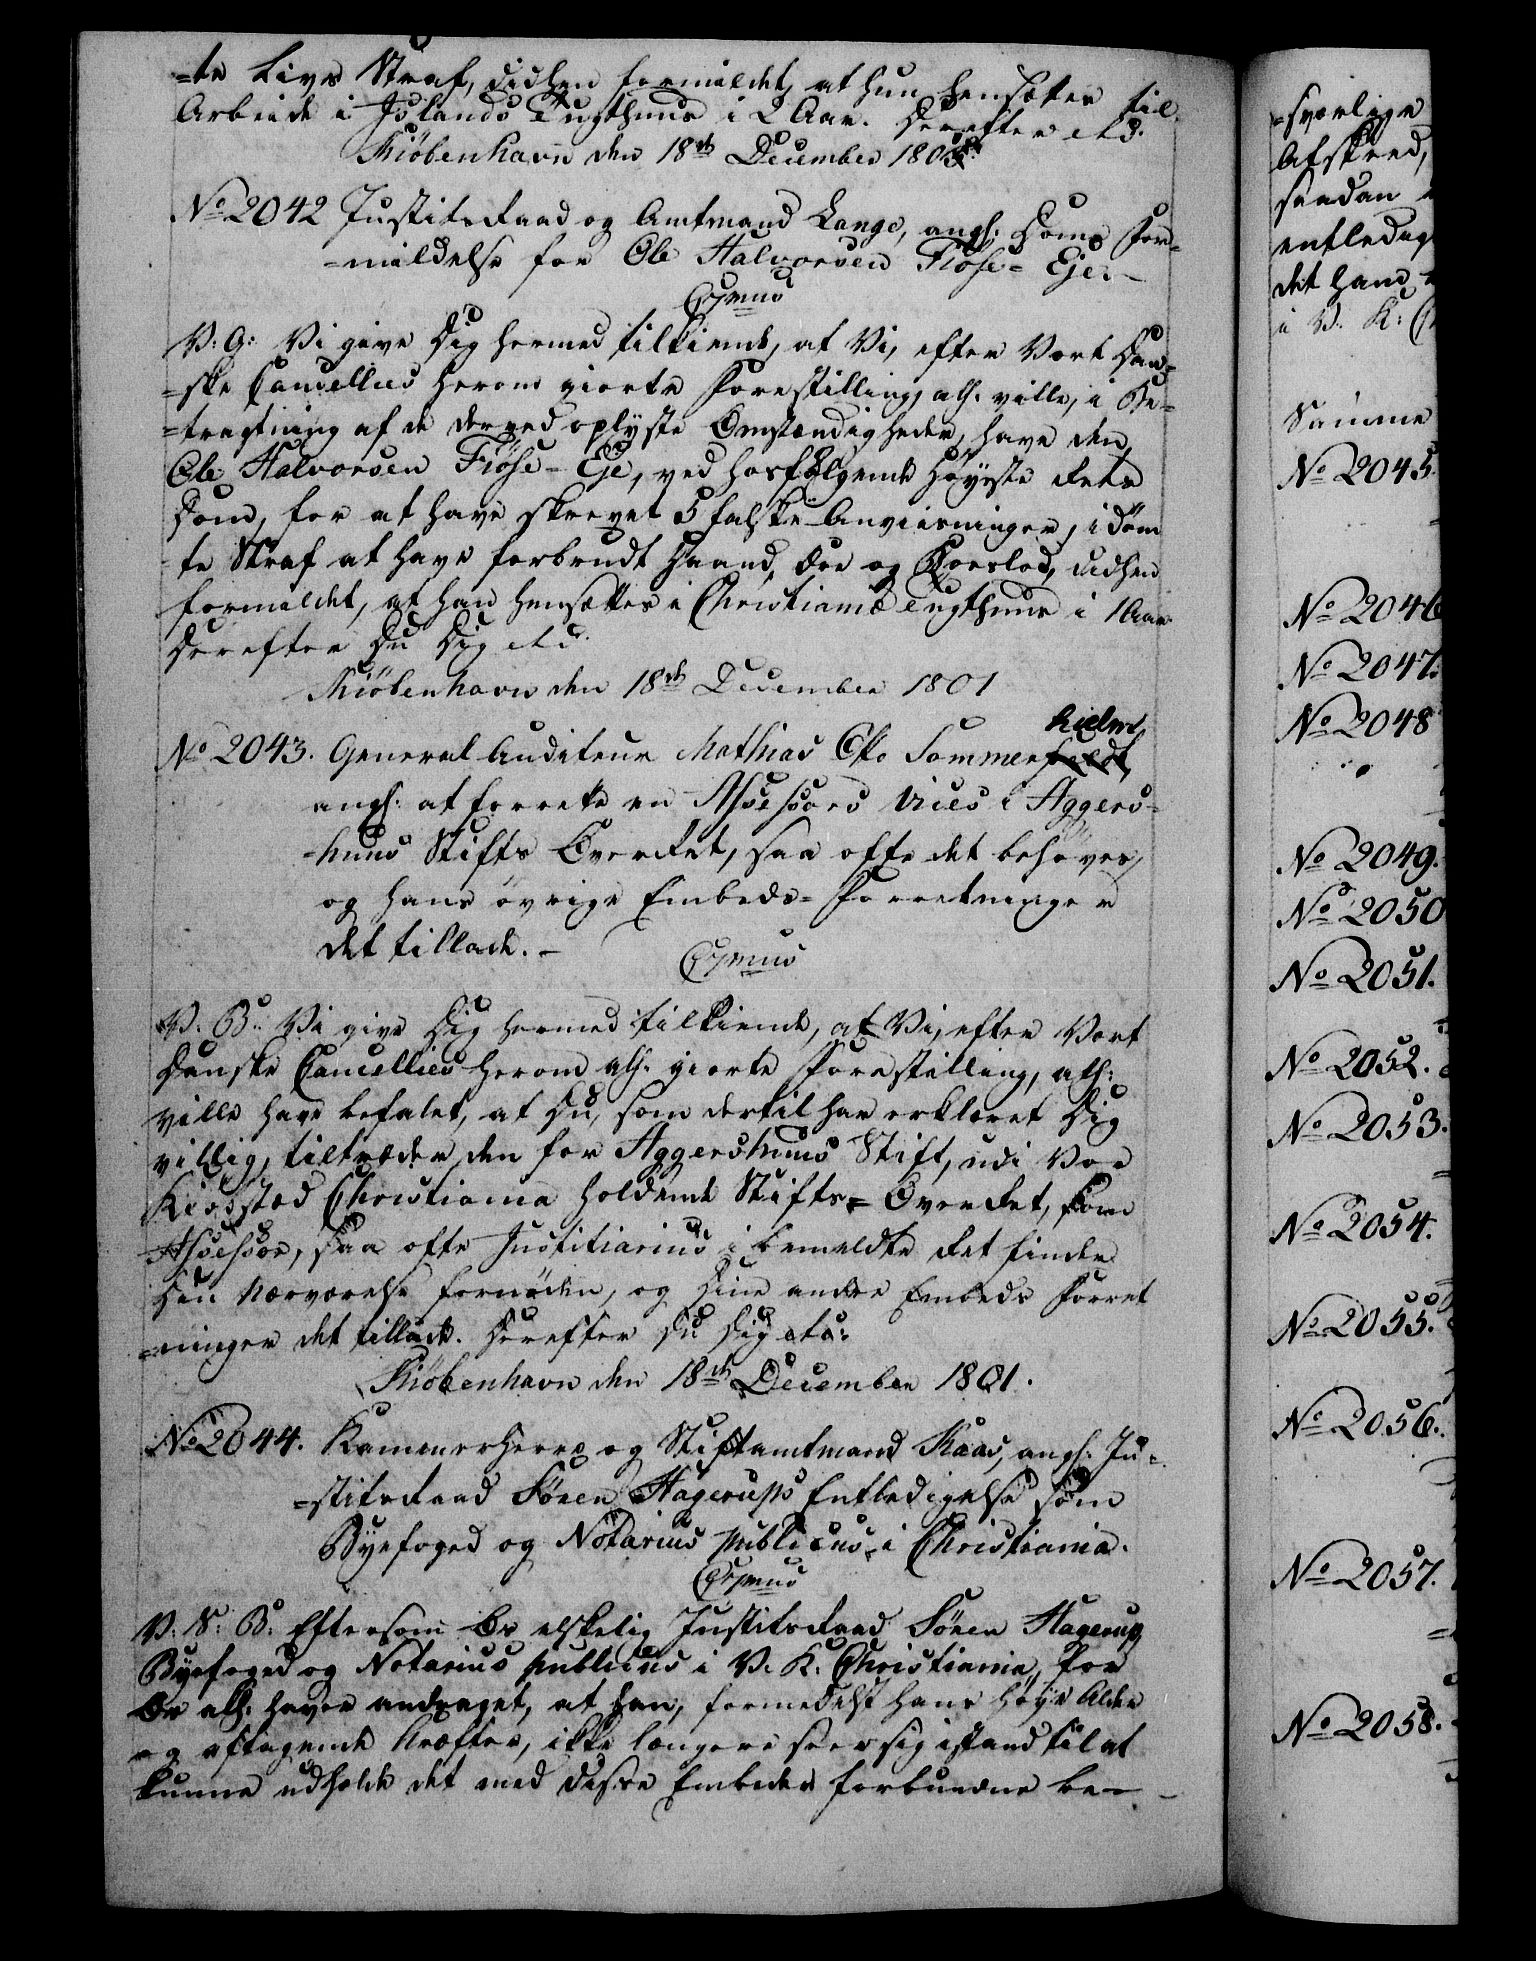 =te Livs Straf, didhen formildet, at hun hensættes til
Arbeide i Islands Tugthuus i 2 Aar. Derefter etc.
Kiöbenhavn den 18de December 1801.
No 2042 Justitsraad og Amtmand Lange, angl: Doms For=
=mildelse for Ole Halvorsen Flöse= Eje. -
V: G: Vi give Dig hermed tilkiende, at Vi, efter Vort Dan=
=ske Cancellies herom giorte Forestilling, alh: ville, i Be=
=tragtning af de derved oplyste Omstændigheder, have den,
Ole Halvorsen Flöse= Eje, ved hosfölgende Höyeste Rets
Dom, for at have skrevet 5 falske Anviisninger, idöm
=te Straf at have forbrudt Haand, Ære og Boeslod, didhen
formildet, at han hensættes i Christiania Tugthuus i 1 Aar
Derefter Du Dig etc.
Kiöbenhavn den 18de December 1801
hielm
No 2043. General Auditeur Mathias Otto Sommerfeldt,
angl: at forrette en Assessors Vices i Aggers=
=huus Stifts Overret, saa ofte det behöves,
og hans övrige Embeds= Forretninger
det tillade. -
V. B: Vi give Dig hermed tilkiende, at Vi, efter Vort
Danske Cancellies herom alh: giorte Forestilling, alh:
ville have befalet, at Du, som dertil har erklæret Dig
villig, tiltræder den for Aggershuus Stift, udi Vor
Kiöbsted Christiania holdende Stifts= Overret, som
Assessor, saa ofte Justitiarius i bemeldte Ret finder
Din Nærværelse fornöden, og Dine andre Embeds Forret
=ninger det tillade. Derefter Du Dig etc:
Kiöbenhavn den 18de December 1801.
No 2044. Kammerherre og Stiftamtmand Kaas, angl: Ju=
=stitsraad Sören Hagerups Entledigelse som
Byefoged og Notarius publicus i Christiania.
V. S: B: Eftersom Os elskelig Justitsraad Sören Hagerup,
Byefoged og Notarius publicus i V. K: Christiania, for
Os alh: haver andraget, at han, formedelst hans höye Alder
og aftagende Kræfter, ikke længere seer sig istand til at
kunne udholde det med disse Embeder forbundne be=
=sværlige
Afskeed,
saadan
entledige
det ham
i V. K:
Samme
No 2045.
No 2046
No 2047.
No 2048
No 2049.
No 2050
No 2051.
No 2052.
No 2053.
No 2054.
No 2055.
No 2056.
No 2057.
No 2058.